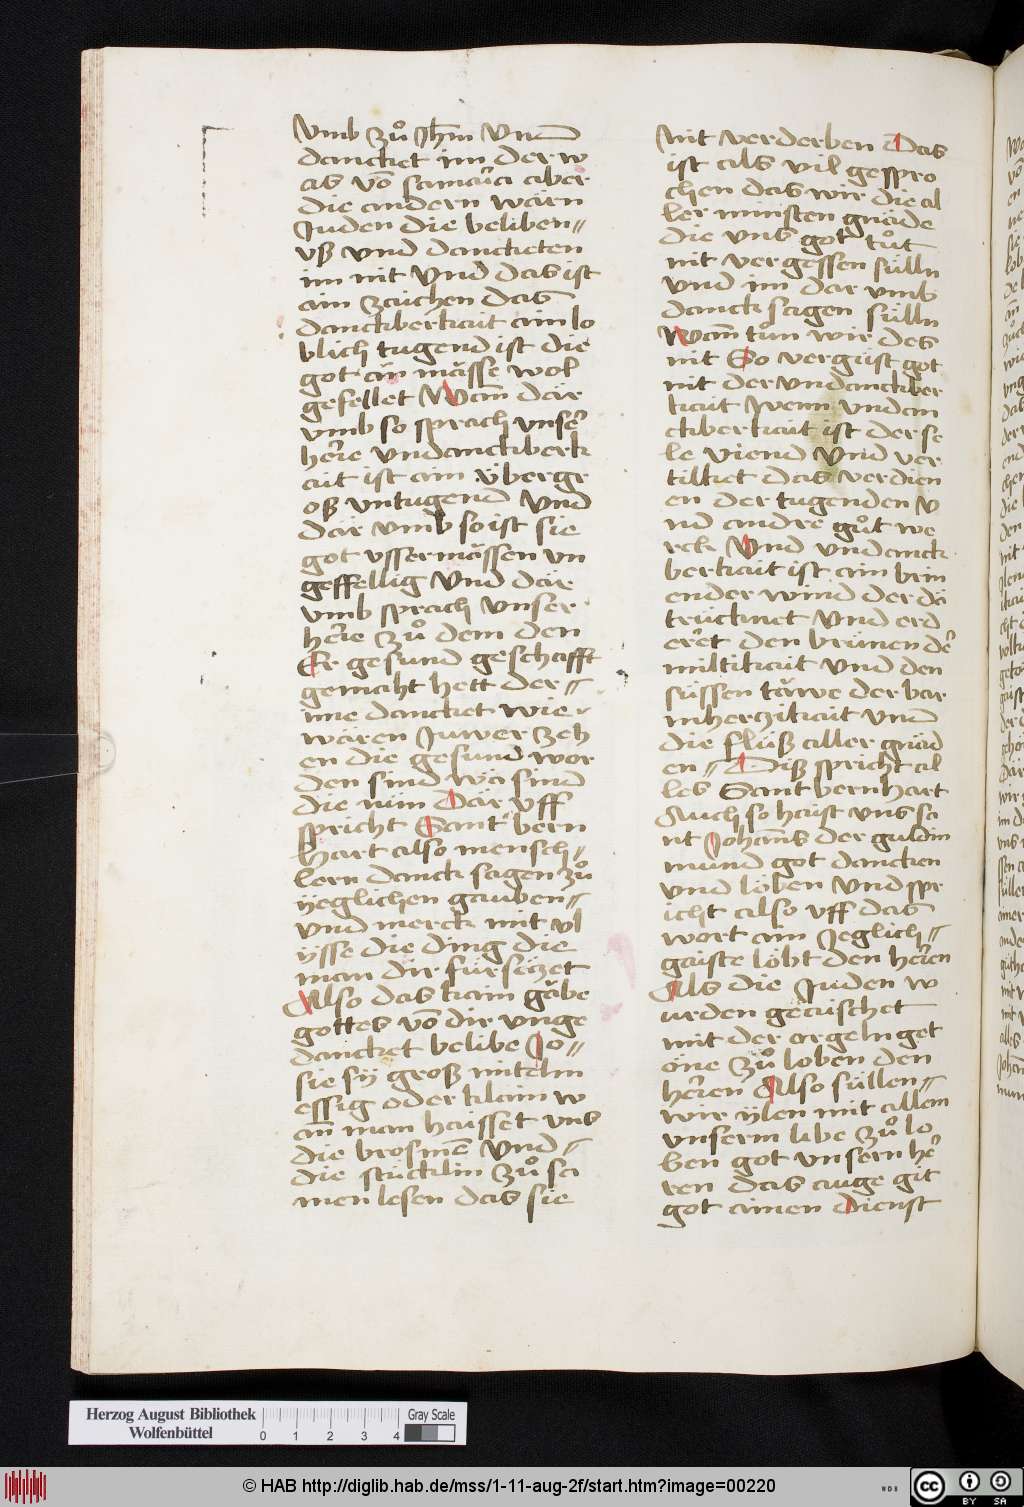 vmb zuͦ Jhm̄ Vnd
dancket im der w
as vō samaria aber
die andern wärn
Juden die beliben〃
vß vnd danckten
im nit Vnd das ist
ain zaichen das
danckberkait ain lo
blich tugend ist die
got än mässe wol
gefellet Wan̄ där
vmb so sprach vnser
here vndanckberk
ait ist ain vͤbergr
oß vntugend Vnd
där vmb so ist sie
got vssermässen vn
geffellig Vnd där
vmb sprach vnser
here zuͦ dem den
Er gesund geschafft
gemacht hett der〃
ime dancket wie
wären Juwer zeh
en die gesund wor
den sind wä sind
die nün Där vff
spricht Sant bern
hart also mensch〃
lern danck sagen zuͦ
ÿeglichen gauben〃
vnd merck mit vl
ÿsse die ding die
man dir fürseczet
Also das kain gäbe
gottes vō dir vnge
dancket belibe Jo〃
sie sÿ groß mitelm
essig oder klain w
an̄ man haisset vns
die brosmē Vnd〃
die stücklin zuͦ sa
men lesen das sie
nit verderben Das
ist als vil gespro
chen das wir die al
ler minsten gnäde
die vns got tuͦt
nit vergessen sülln
vnd im dar vmb
danck sagen sülln
Wan̄ tuͦn wir des
nit So vergiist got
nit der vndanckber
kait Wenn vndan
ckberkait ist der se
le viend Vnd ver
tilket das verdien
en der tugenden V
nd andre guͦt we
rck Vnd vndanck
berkait ist ain brin
ender wind der dä
trücknet Vnd erd
eret den brünen der
miltikait Vnd den
süssen täwe der bar
mherczikait vnd
die flüß aller gnäd
en〃 Diß spricht al
les Sant bernhart
Auch so haist vns sa
nt Johan̄s der guldin
mund got dancken
vnd loben Vnd spr
icht also vff das
wort ain Jeglich〃
gaiste löbt den heren
Als die Juden w
urden gehaischet
mit der orgeln get
öne zuͦ loben den
heren Also süllen〃
wir ÿlen mit allem
vnserm libe zuͦ lo
ben got vnsern he
ren das auge git
got ainen dienst
Herzog August Bibliothek
Wolfenbüttel
0 1 2 3 4
Gray Scale
© HAB http://diglib.hab.de/mss/1-11-aug-2f/start.htm?image=00220
WDB
cc BY SA